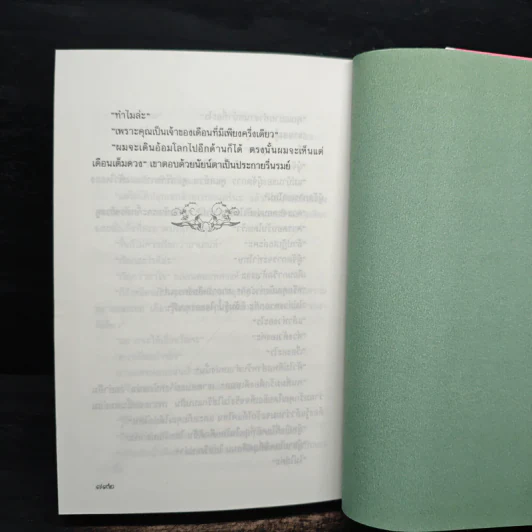 "ทำไมล่ะ"
"เพราะคุณเป็นเจ้าของเดือนที่มีเพียงครึ่งเดียว"
"ผมจะเดินอ้อมโลกไปอีกด้านก็ได้ ตรงนั้นผมจะเห็นแต่
เดือนเต็มดวง" เขาตอบด้วยนัยน์ตาเป็นประกายรื่นรมย์